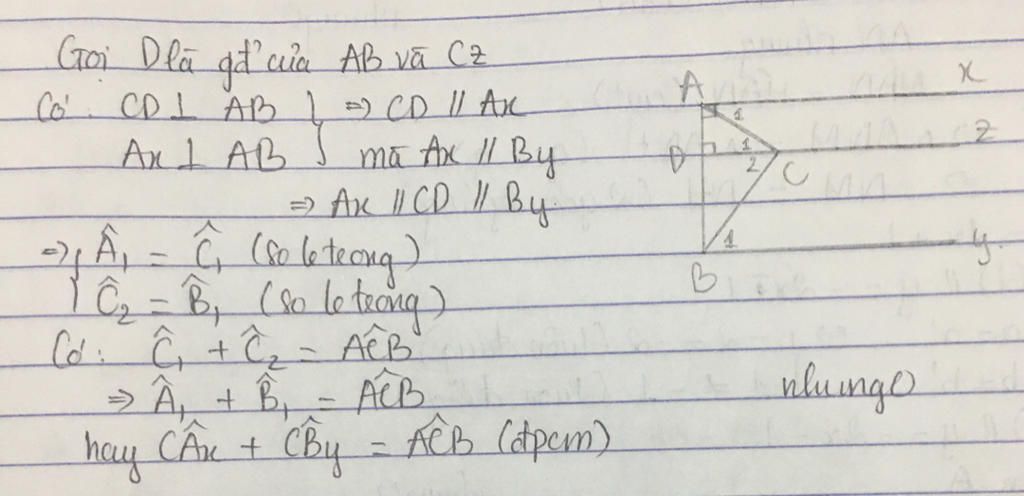 Gọi D là gđ' của AB và Cz
Có: CD ⊥ AB } ⇒ CD // Ax
Ax ⊥ AB } mà Ax // By
⇒ Ax // CD // By
⇒ { Â₁ = Ĉ₁ (so le trong)
{ Ĉ₂ = B̂₁ (so le trong)
Có: Ĉ₁ + Ĉ₂ = AĈB
⇒ Â₁ + B̂₁ = AĈB
hay CÂx + CB̂y = AĈB (đtpcm)
nhungO
A 1 x
D 1 2 C z
B 1 y